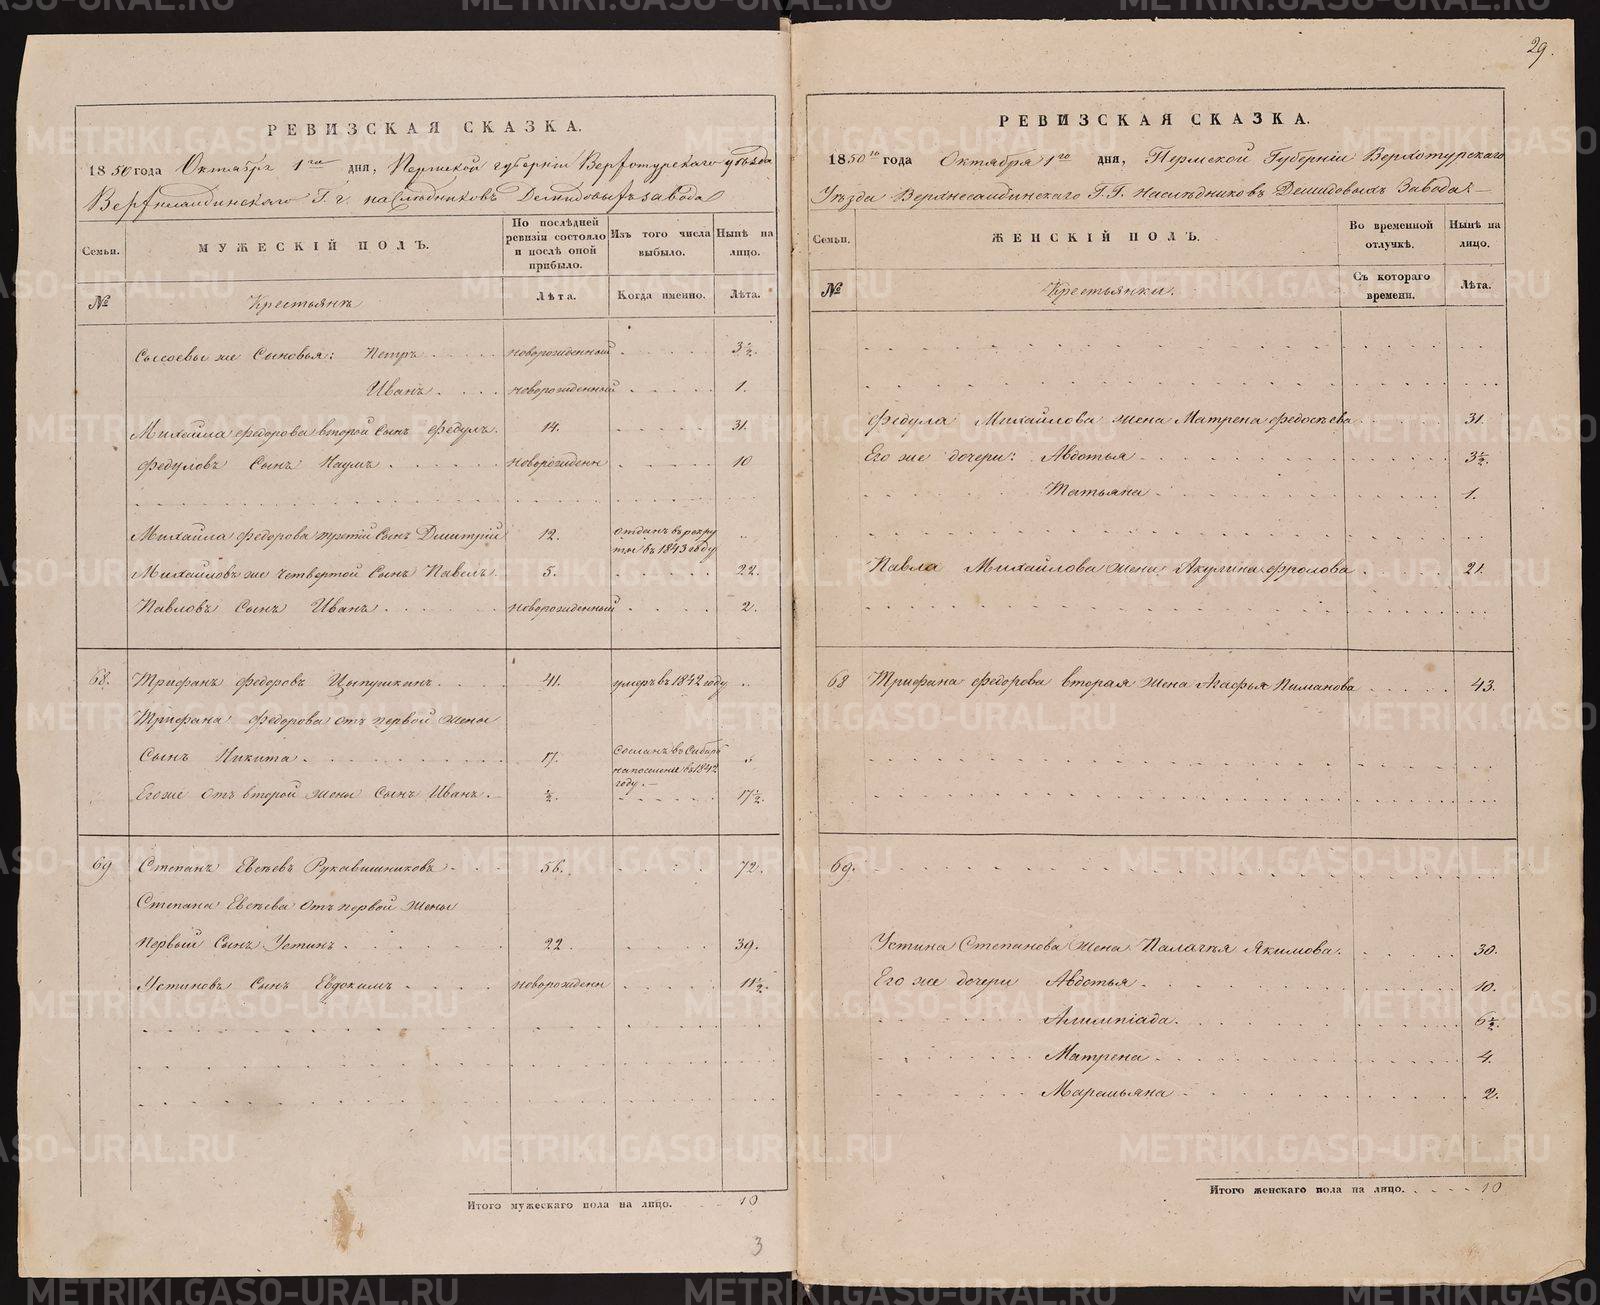 РЕВИЗСКАЯ СКАЗКА.
1850 года Октябрь 1го дня, Пермской губернiи Верхотурскаго уезда
Верхнесалдинскаго Г. г. наследниковъ Демидовыхъ завода
Семьи.
МУЖЕСКIЙ ПОЛЪ.
По послѣдней ревизiи состояло и послѣ оной прибыло.
Изъ того числа выбыло.
Нынѣ на лицо.
№
Крестьянъ
Лѣта.
Когда именно.
Лѣта.
Сысоевы же Сыновья: Петръ новорожденный 3½.
Иванъ новорожденный 1.
Михайла Федорова второй Сынъ Федулъ. 14. 31.
Федуловъ Сынъ Наумъ новорожденн 10
Михайла Федорова третiй Сынъ Дмитрiй 12. отданъ въ рекруты въ 1843 году
Михайловъ же четвертой Сынъ Павелъ. 5. 22.
Павловъ Сынъ Иванъ новорожденный 2.
68. Трифанъ Федоровъ Цыпушкинъ. 41. умеръ въ 1842 году
Трифана Федорова отъ первой жены
Сынъ Никита. 17. Сосланъ въ Сибирь на поселенiе въ 1842 году.
Его же отъ второй жены Сынъ Иванъ. ½. 17½.
69 Степанъ Евсѣевъ Рукавишниковъ 56. 72.
Степана Евсѣева отъ первой жены
первый Сынъ Устинъ. 22. 39.
Устиновъ Сынъ Евдокимъ новорожденн 11½.
Итого мужескаго пола на лицо. 10
3
29.
РЕВИЗСКАЯ СКАЗКА.
1850го года Октября 1го дня, Пермской Губернiи Верхотурскаго
Уѣзда Верхнесалдинскаго Г.Г. Наслѣдниковъ Демидовыхъ Завода.
Семьи.
ЖЕНСКIЙ ПОЛЪ.
Во временной отлучкѣ.
Нынѣ на лицо.
№
Крестьянки.
Съ котораго времени.
Лѣта.
Федула Михайлова жена Матрена Федосѣева 31.
Его же дочери: Авдотья 3½.
Татьяна 1.
Павла Михайлова жена Акулина Фролова 21.
68 Трифана Федорова вторая жена Агафья Пиманова 43.
69.
Устина Степанова жена Палагѣя Якимова. 30.
Его же дочери Авдотья 10.
Алимпiада. 6½.
Матрена 4.
Маремьяна 2.
Итого женскаго пола на лицо. 10
METRIKI.GASO-URAL.RU